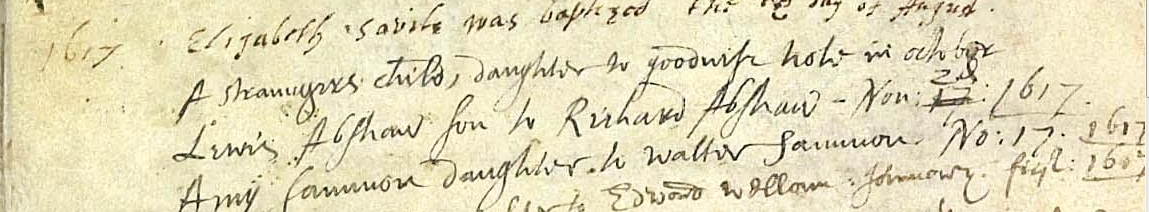 1617. Elizabeth Savile was baptized the day of August.
A straungers child, daughter to goodwife hole in october
Lewis Abshaw son to Richard Abshaw - Nov: 17 28: 1617.
Amy Sammon daughter to Walter Sammon. No: 17. 1617
to Edward 160